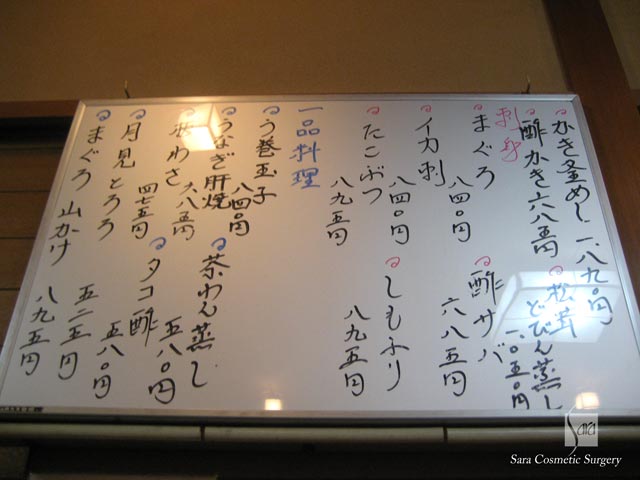 かき釜めし 一、八九〇円
酢かき 六八五円
松茸どびん蒸し
一、〇五〇円
刺身
まぐろ
八四〇円
酢サバ
六八五円
イカ刺
八四〇円
たこぶつ
八九五円
しもふり
八九五円
一品料理
う巻玉子
八四〇円
うなぎ肝焼
六八五円
茶わん蒸し
五八〇円
板わさ
四七五円
タコ酢
五八〇円
月見とろろ
五二五円
まぐろ山かけ
八九五円
Sara
Sara Cosmetic Surgery